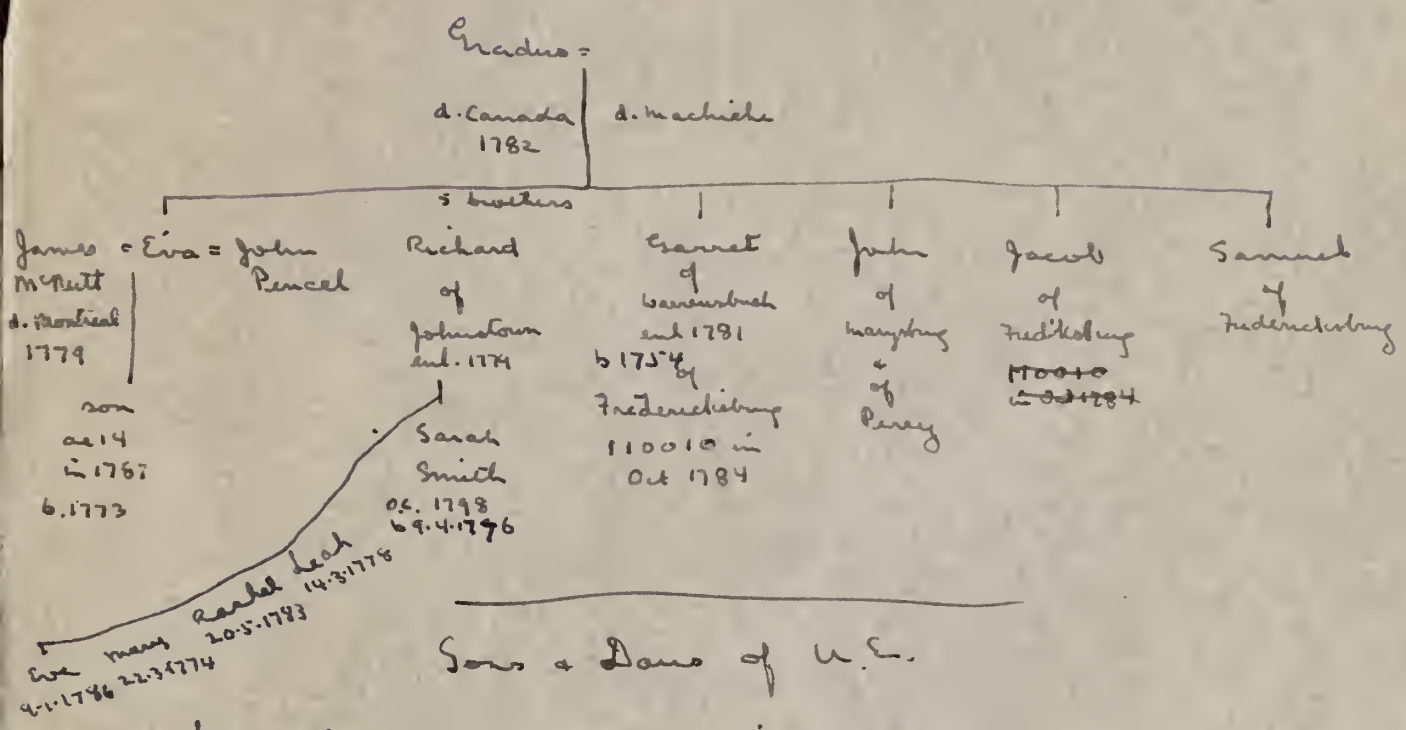 Gradus =
d. Canada
1782
d. Machiche
5 brothers
James = Eva = John
McNutt
Pencel
d. Montreal
1779
son
ae 14
in 1787
b. 1773
Richard
of
Johnstown
enl. 1779
Sarah
Smith
O.C. 1798
b 9.4.1776
Leah
14.3.1778
Rachel
20.5.1783
Mary
22.3.1774
Eve
9.1.1786
Garret
of
Warrensbush
enl 1781
b 1754
of
Fredericksburg
110010 in
Oct 1784
John
of
Marysburg
&
of
Percy
Jacob
of
Fred'ksburg
110010
in Oct 1784
Samuel
of
Fredericksburg
Sons & Daus of U.E.